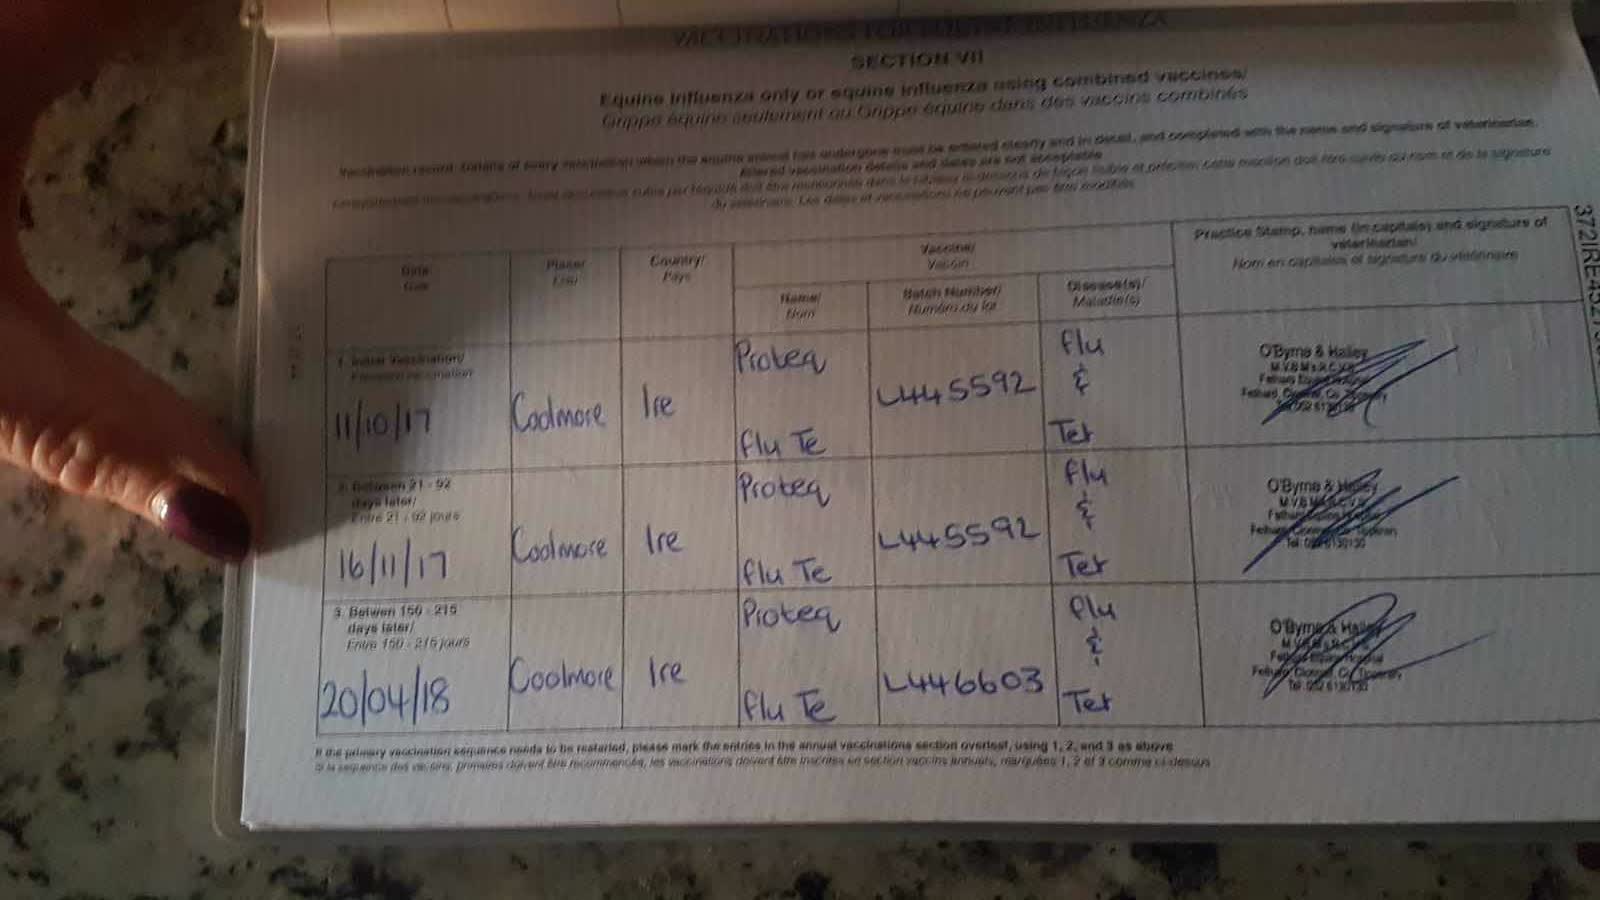 VACCINATIONS FOR EQUINE INFLUENZA
SECTION VII
Equine Influenza only or equine influenza using combined vaccines/
Grippe équine seulement ou Grippe équine dans des vaccins combinés
Vaccination record. Details of every vaccination which the equine animal has undergone must be entered clearly and in detail, and completed with the name and signature of veterinarian.
Altered vaccination details and dates are not acceptable
du vétérinaire. Les dates et vaccinations ne peuvent pas être modifiés
372IRE
Date/ Place/ Country/ Vaccine/ Practice Stamp, name (in capitals) and signature of
Date Lieu Pays Vaccin veterinarian/
Nom en capitales et signature du vétérinaire
Name/ Batch Number/ Disease(s)/
Nom Numéro du lot Maladie(s)
1. Initial Vaccination/
Première vaccination
11/10/17 Coolmore Ire Proteq Flu Te L445592 Flu & Tet
O'Byrne & Halley
M.V.B M.R.C.V.S
Fethard Equine Hospital
Fethard, Clonmel, Co. Tipperary
Tel: 052 6130130
2. Between 21 - 92
days later/
Entre 21 - 92 jours
16/11/17 Coolmore Ire Proteq Flu Te L445592 Flu & Tet
O'Byrne & Halley
M.V.B M.R.C.V.S
Fethard Equine Hospital
Fethard, Clonmel, Co. Tipperary
Tel: 052 6130130
3. Betwen 150 - 215
days later/
Entre 150 - 215 jours
20/04/18 Coolmore Ire Proteq Flu Te L446603 Flu & Tet
O'Byrne & Halley
M.V.B M.R.C.V.S
Fethard Equine Hospital
Fethard, Clonmel, Co. Tipperary
Tel: 052 6130130
If the primary vaccination sequence needs to be restarted, please mark the entries in the annual vaccinations section overleaf, using 1, 2, and 3 as above
Si la séquence des vaccins, primaires doivent être recommencée, les vaccinations doivent être inscrites en section vaccins annuels, marquées 1, 2 et 3 comme ci-dessus